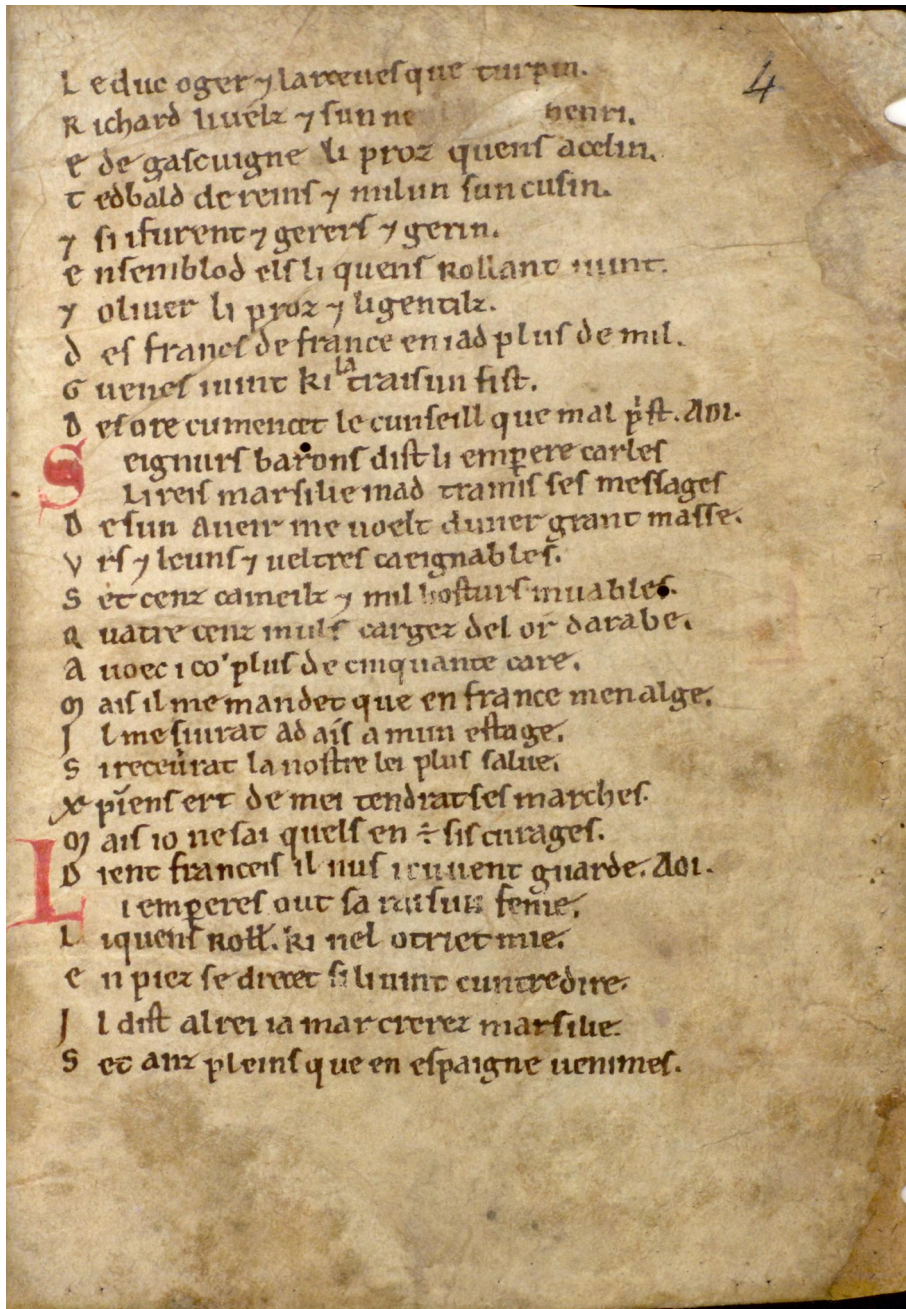 4
L e duc oger ⁊ larceuesque turpin.
R ichard li uelz ⁊ sun ne henri.
E de gascuigne li proz quens acelin.
T edbald de reins ⁊ milun sun cusin.
⁊ si i furent ⁊ gerers ⁊ gerin.
E nsembl od els li quens rollant i uint.
⁊ oliuer li proz ⁊ li gentilz.
D es francs de france en i ad plus de mil.
G uenes i uint ki la traisun fist.
D es ore cumencet le cunseill que mal p̛st. AOI.
S eignurs barons dist li emꝑere carles
Li reis marsilie mad tramis ses messages
D e sun aueir me uoelt duner grant masse.
V rs ⁊ leuns ⁊ ueltres caeignables.
S et cenz cameilz ⁊ mil hosturs muables.
Q uatre cenz muls cargez del or darabe.
A uoec i co' plus de cinquante care.
M ais il me mandet que en france men alge.
I l me siurat ad ais a mun estage.
S i receůrat la nostre lei plus salue.
X pīens ert de mei tendrat ses marches.
M ais io ne sai quels en ÷ sis curages.
D ient franceis il nus i cuuent guarde. AOI.
L i emꝑeres out sa raisun fenie.
L i quens Roll̃. ki nel otriet mie.
E n piez se drecet si li uint cuntredire.
I l dist al rei ia mar crerez marsilie.
S et anz pleins que en espaigne uenimes.